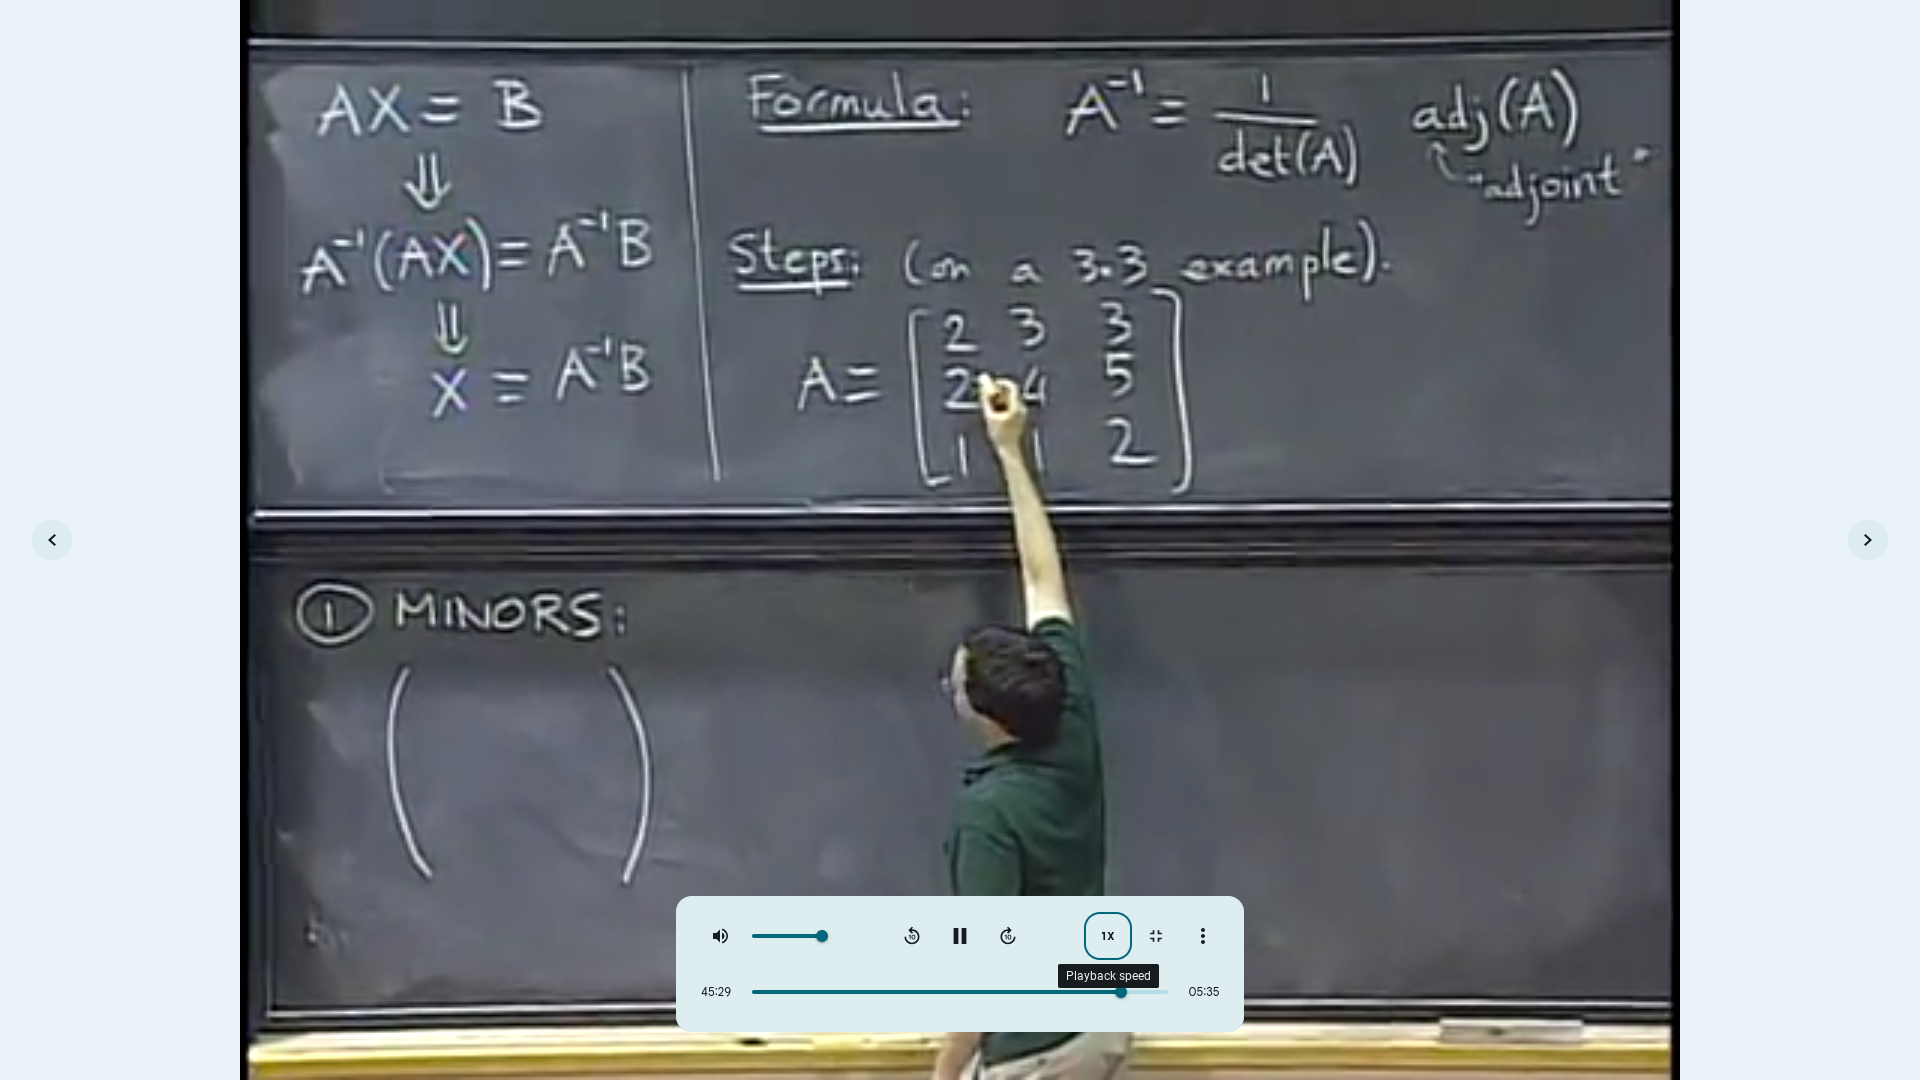 AX = B
⇓
A⁻¹(AX) = A⁻¹B
⇓
X = A⁻¹B
Formula: A⁻¹ = 1/det(A) adj(A)
"adjoint"
Steps: (on a 3×3 example).
A = [2 3 3
2 4 5
1 1 2]
① MINORS:
( )
1X
Playback speed
45:29
05:35